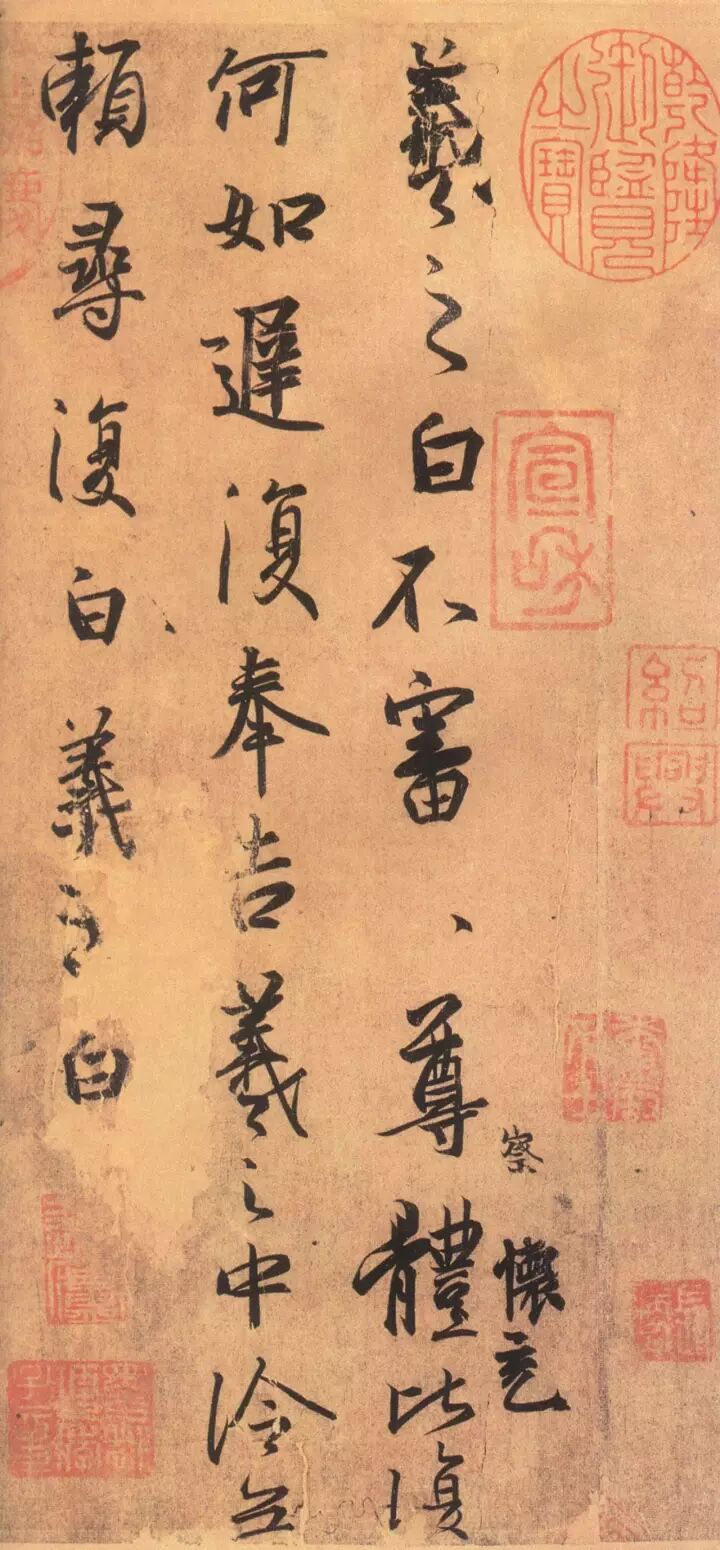 乾隆
御覽
之寶
宣和
紹興
察
懷充
羲之白不審、尊體比復
何如遲復奉告羲之中冷無
賴尋復白羲之白